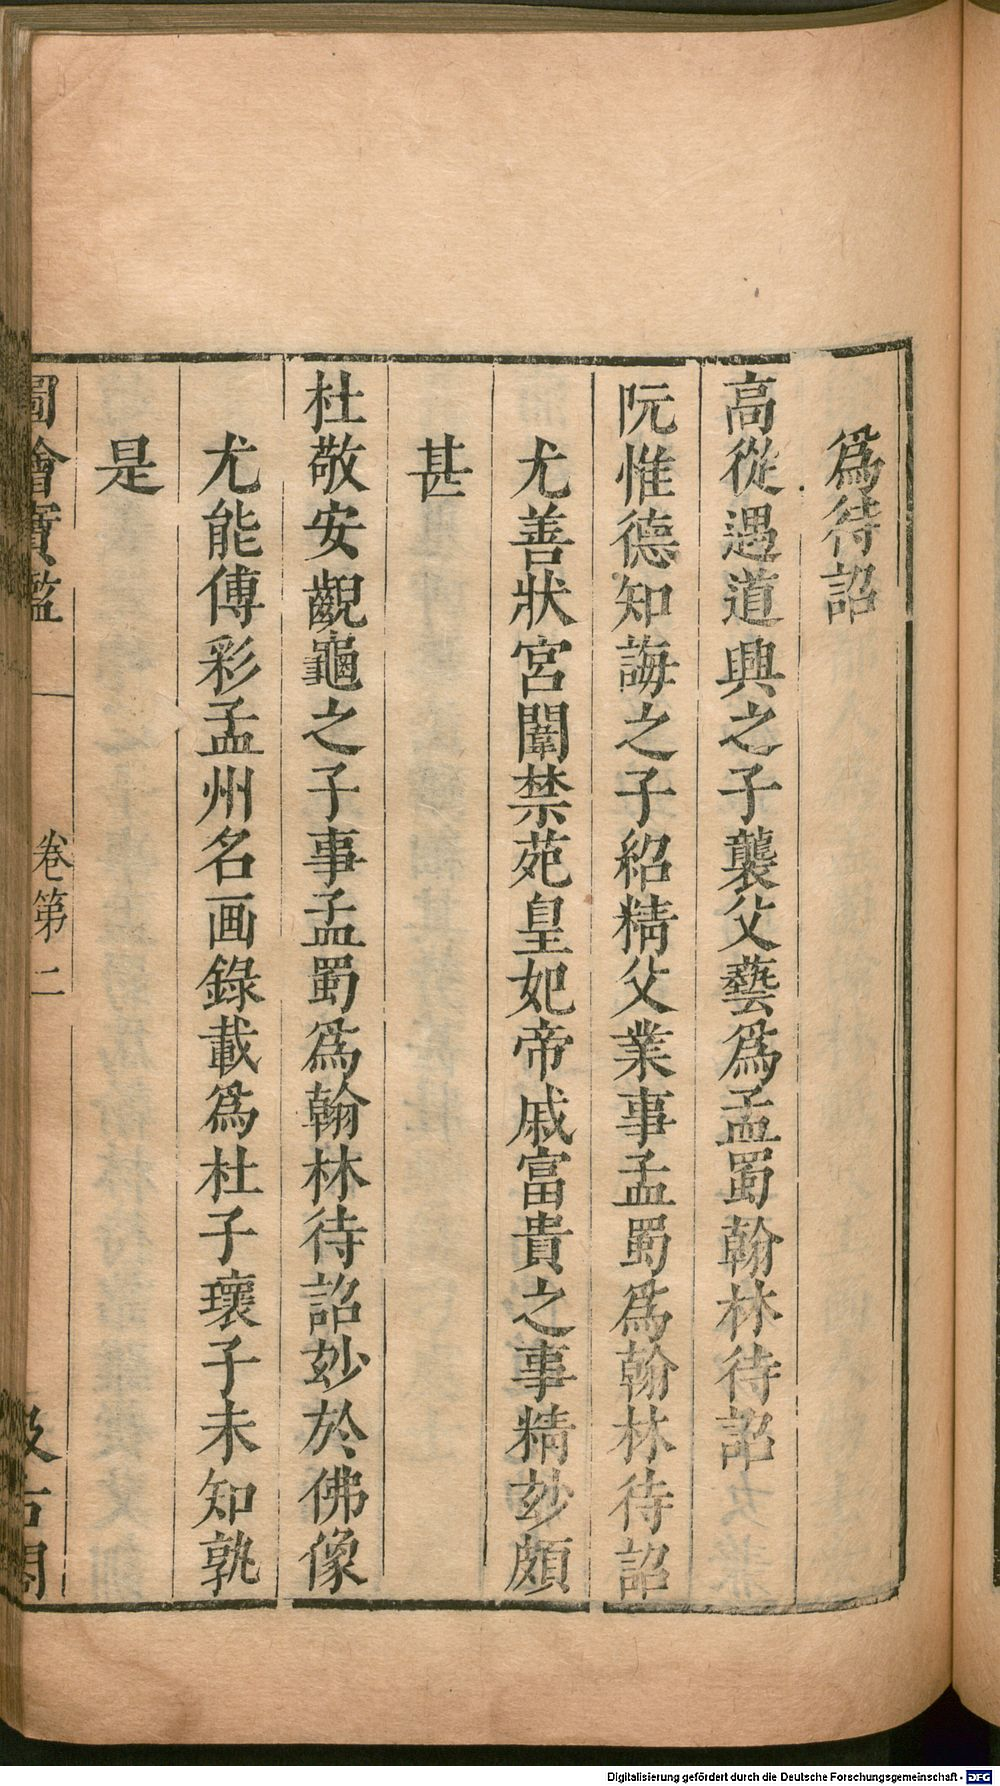 爲待詔
高從遇道興之子襲父藝爲孟蜀翰林待詔
阮惟德知誨之子紹精父業事孟蜀爲翰林待詔
尤善狀宮闈禁苑皇妃帝戚富貴之事精玅頗
甚
杜敬安覷龜之子事孟蜀爲翰林待詔玅於佛像
尤能傅彩孟州名画錄載爲杜子瓌子未知孰
是
圖繪寶鑑
卷第二
汲古閣
Digitalisierung gefördert durch die Deutsche Forschungsgemeinschaft - DFG